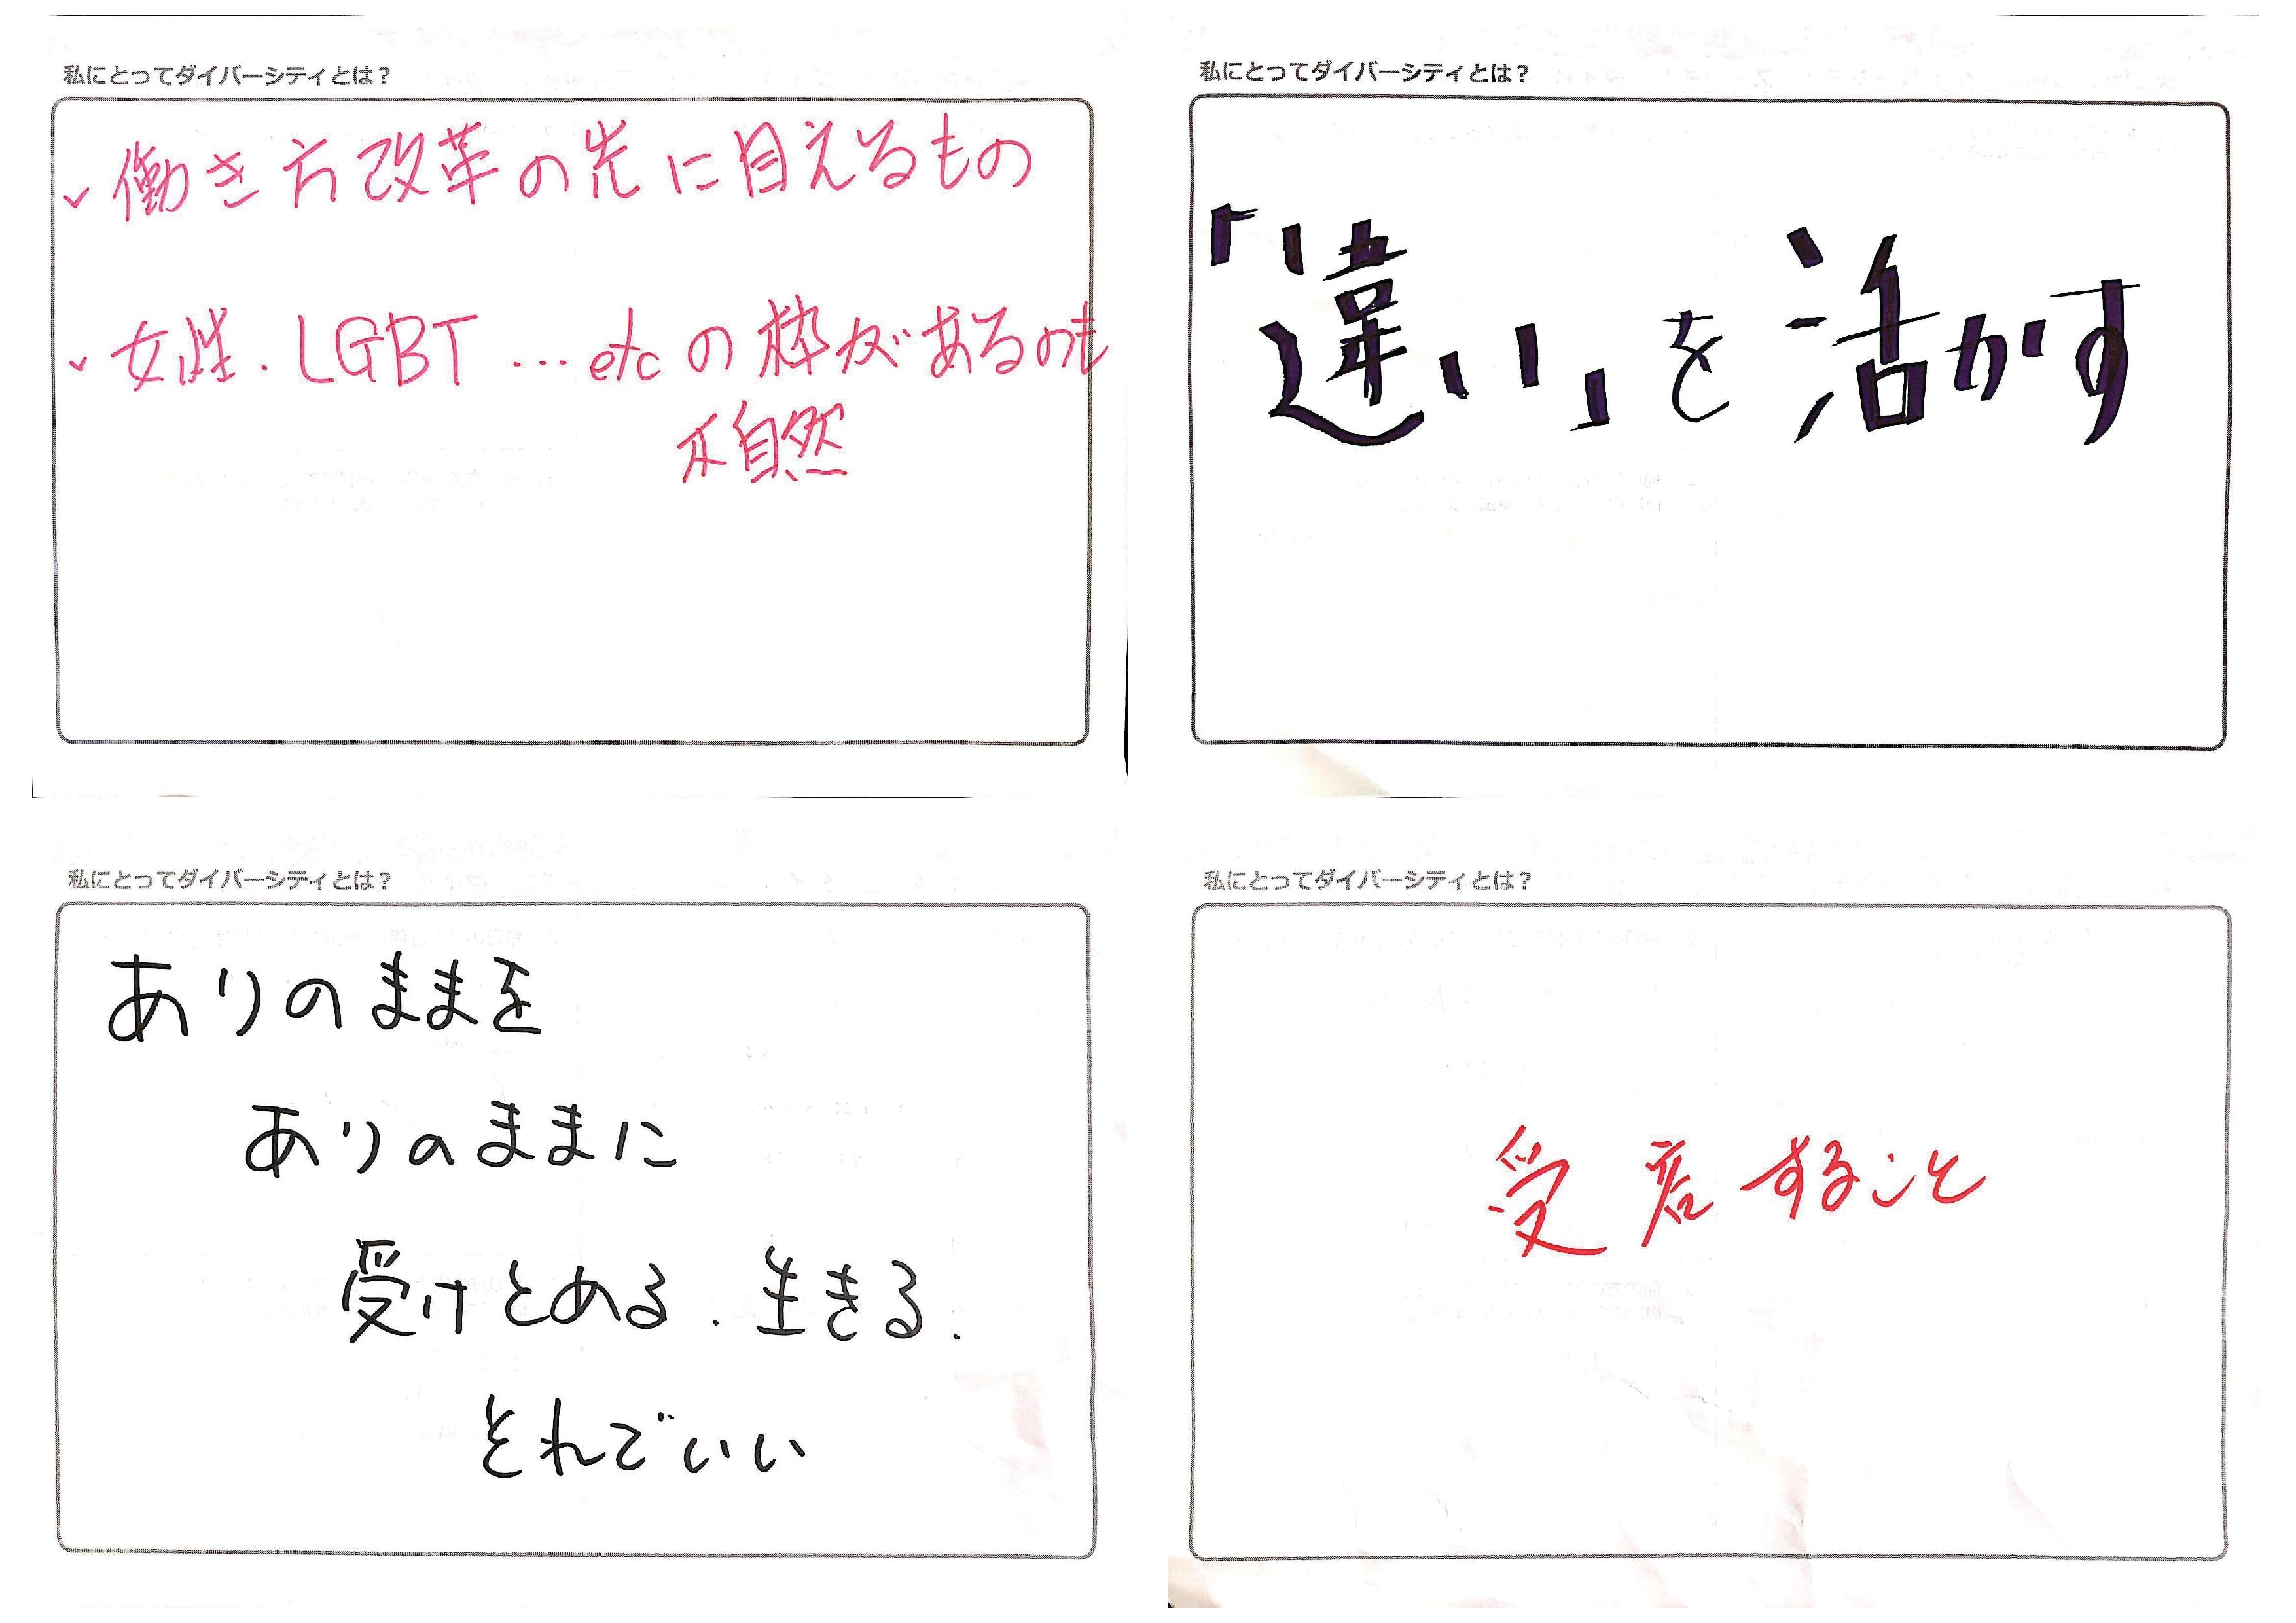 私にとってダイバーシティとは？
✓ 働き方改革の先に目えるもの
✓ 女性．LGBT … etc の枠があるのも
不自然
私にとってダイバーシティとは？
「違い」を活かす
私にとってダイバーシティとは？
ありのままを
ありのままに
受けとめる．生きる．
それでいい
私にとってダイバーシティとは？
すること